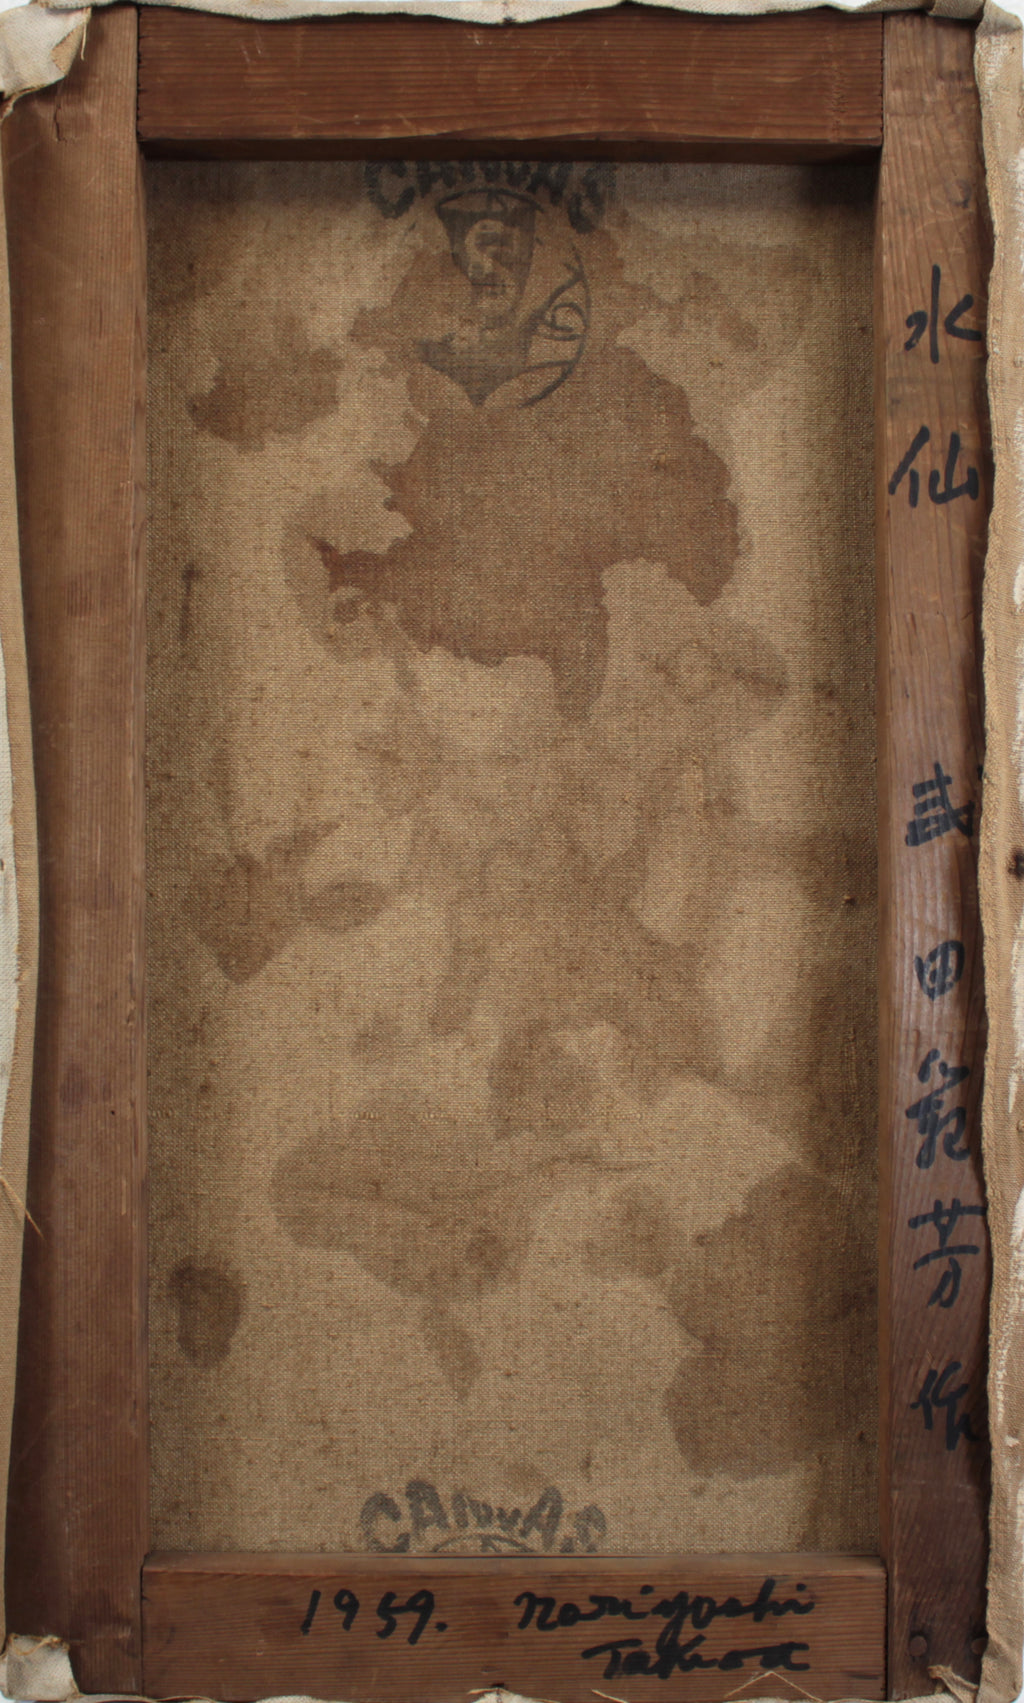 CANVAS
水仙 武田範芳作
CANVAS
1959. Noriyoshi
Takeda